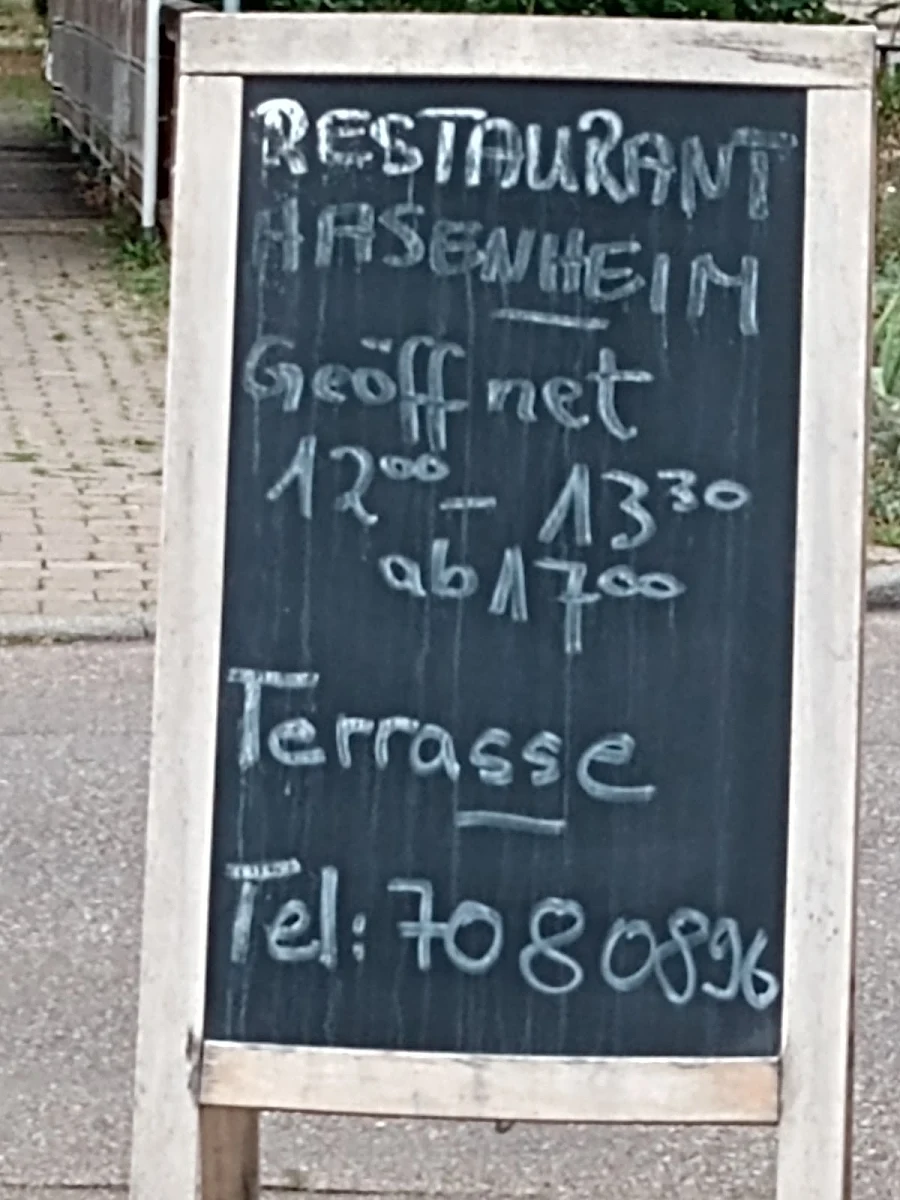 RESTAURANT
HASENHEIM
Geöffnet
12⁰⁰ - 13³⁰
ab 17⁰⁰
Terrasse
Tel: 7080896